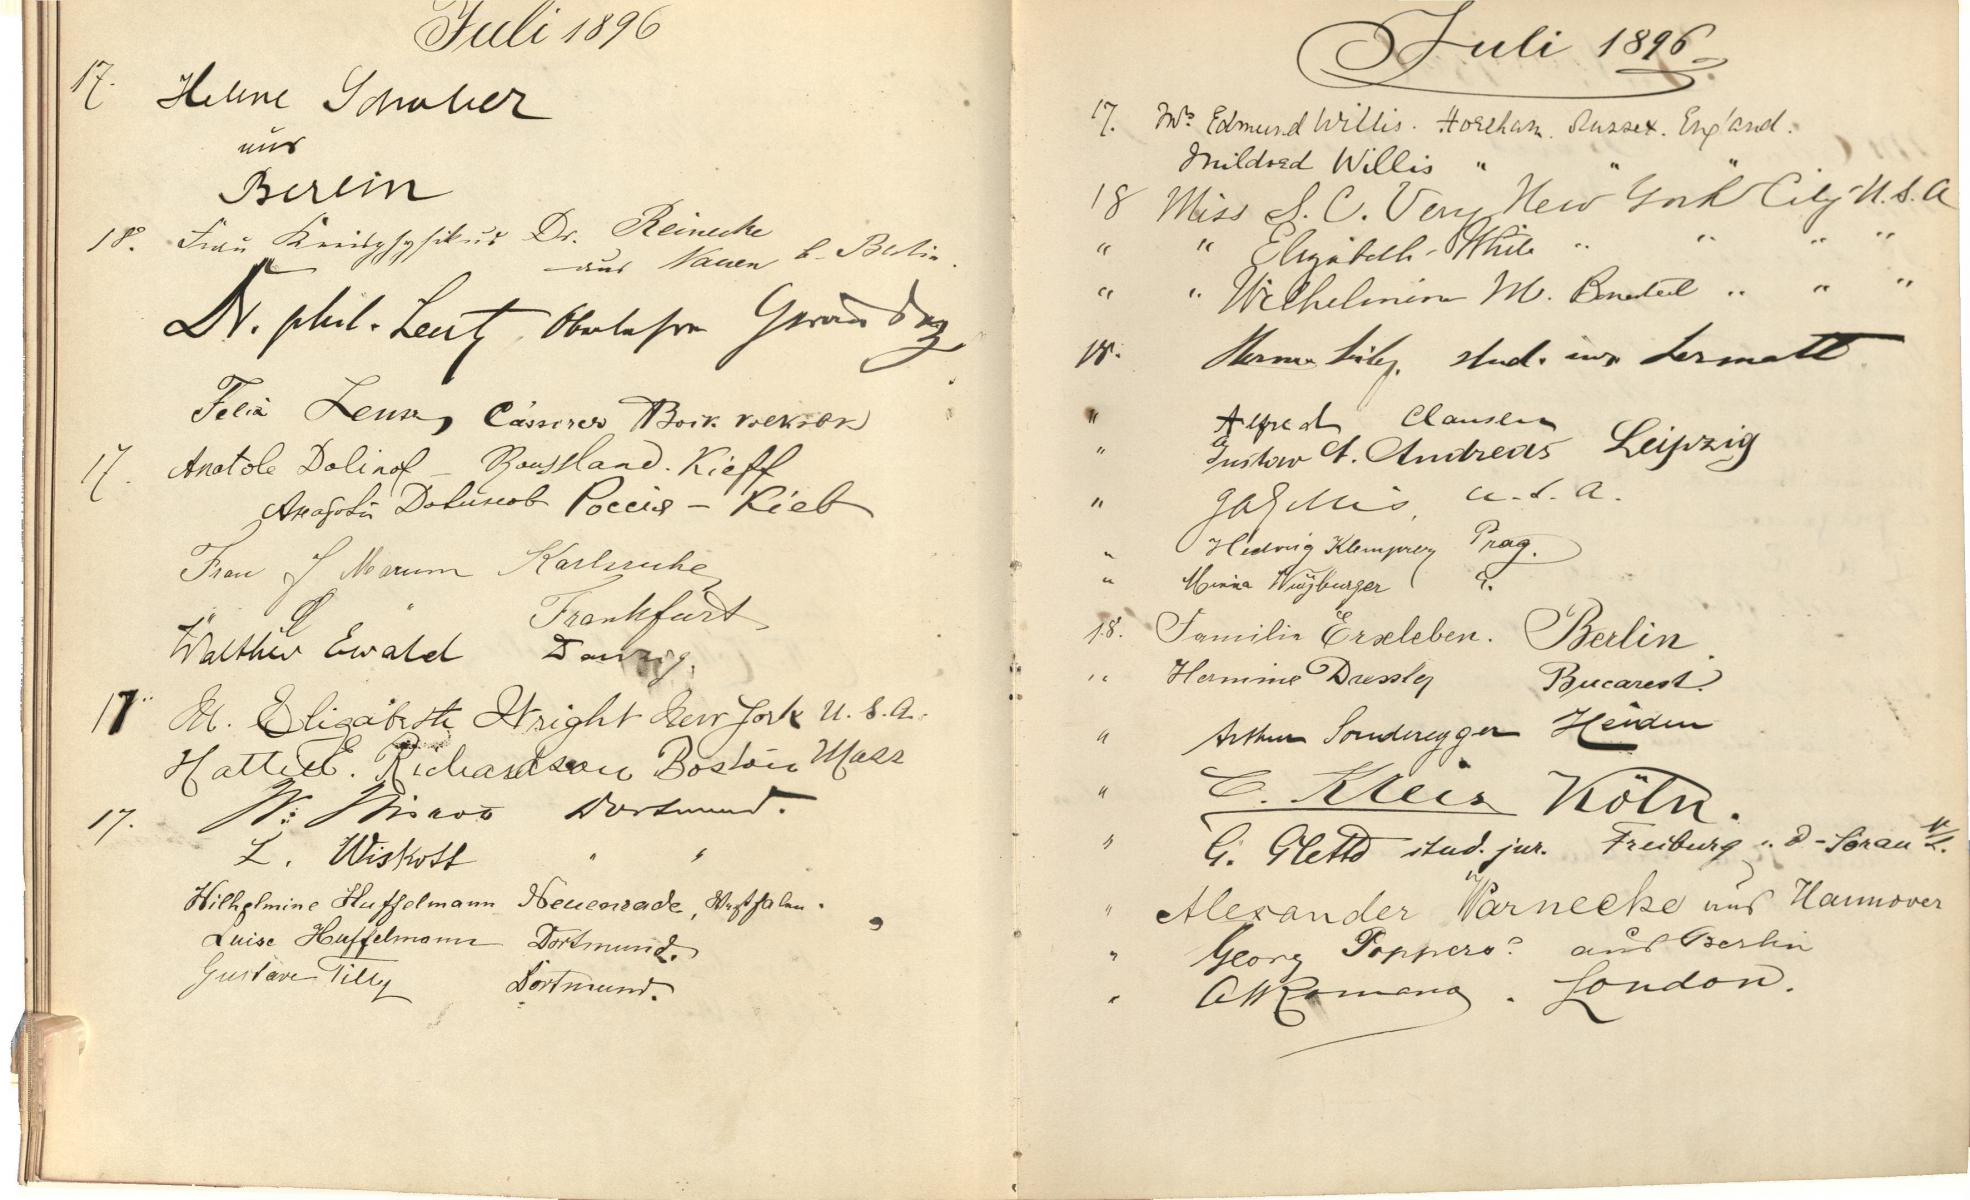 Juli 1896
17. Helene Schober
aus
Berlin
18. Frau Kreisphysikus Dr. Reinecke
aus Nauen b. Berlin.
Dr. phil. Lent, Oberlehrer
Felix
17. Anatole Dolinof – Roussland. Kieff
Долинов Россія – Кіев
Frau J Marum Karlsruhe
" " Frankfurt
Walther Ewald Danzig.
17 M. Elizabeth Wright New York U. S. A.
Hattie E. Richardson Boston Mass
17. W. Dortmund.
L. Wiskott " "
Wilhelmine Huffelmann Neuenrade, Westfalen.
Luise Huffelmann Dortmund.
Gustave Tilly Dortmund.
Juli 1896.
17. Mrs Edmund Willis. Horsham. Sussex. England.
Mildred Willis " " "
18 Miss S. C. Very New York City U. S. A
" " Elizabeth White " " " "
" " Wilhelmina M. " " "
18. stud.
" Alfred Clausen
" Gustav A. Andreas Leipzig
" U. S. A.
" Hedwig Klemperer Prag.
" Minna Würzburger "
18. Familie Erxleben. Berlin.
" Hermine Dressler Bucarest.
" Arthur Sonderegger Heiden
" C. Klein Köln.
" G. Gletto stud. jur. Freiburg Sorau N/L.
" Alexander Warnecke aus Hannover
" Georg Poppers aus Berlin
" London.